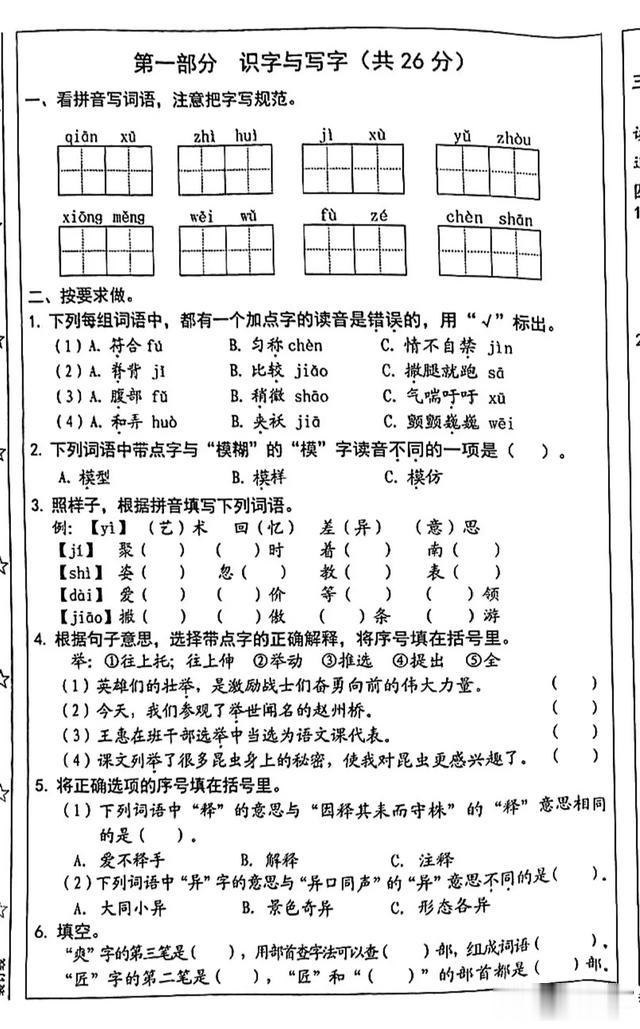 第一部分 识字与写字（共26分）
一、看拼音写词语，注意把字写规范。
qiān xū zhì huì jì xù yǔ zhòu
xiōng měng wēi wǔ fù zé chèn shān
二、按要求做。
1. 下列每组词语中，都有一个加点字的读音是错误的，用“√”标出。
(1) A. 符合 fú B. 匀称 chèn C. 情不自禁 jìn
(2) A. 脊背 jǐ B. 比较 jiǎo C. 撒腿就跑 sā
(3) A. 腹部 fǔ B. 稍微 shāo C. 气喘吁吁 xū
(4) A. 和弄 huò B. 夹袄 jiā C. 颤颤巍巍 wēi
2. 下列词语中带点字与“模糊”的“模”字读音不同的一项是（ ）。
A. 模型 B. 模样 C. 模仿
3. 照样子，根据拼音填写下列词语。
例：【yì】（艺）术 回（忆） 差（异） （意）思
【jí】 聚（ ） （ ）时 着（ ） 南（ ）
【shì】 姿（ ） 忽（ ） 教（ ） 表（ ）
【dài】 爱（ ） （ ）价 等（ ） （ ）领
【jiāo】撒（ ） （ ）傲 （ ）条 （ ）游
4. 根据句子意思，选择带点字的正确解释，将序号填在括号里。
举：①往上托；往上伸 ②举动 ③推选 ④提出 ⑤全
(1) 英雄们的壮举，是激励战士们奋勇向前的伟大力量。 （ ）
(2) 今天，我们参观了举世闻名的赵州桥。 （ ）
(3) 王惠在班干部选举中当选为语文课代表。 （ ）
(4) 课文列举了很多昆虫身上的秘密，使我对昆虫更感兴趣了。 （ ）
5. 将正确选项的序号填在括号里。
(1) 下列词语中“释”的意思与“因释其耒而守株”的“释”意思相同
的是（ ）。
A. 爱不释手 B. 解释 C. 注释
(2) 下列词语中“异”字的意思与“异口同声”的“异”意思不同的是（ ）。
A. 大同小异 B. 景色奇异 C. 形态各异
6. 填空。
“爽”字的第三笔是（ ），用部首查字法可以查（ ）部，组成词语（ ）。
“匠”字的第二笔是（ ），“匠”和“（ ）”的部首都是（ ）部。